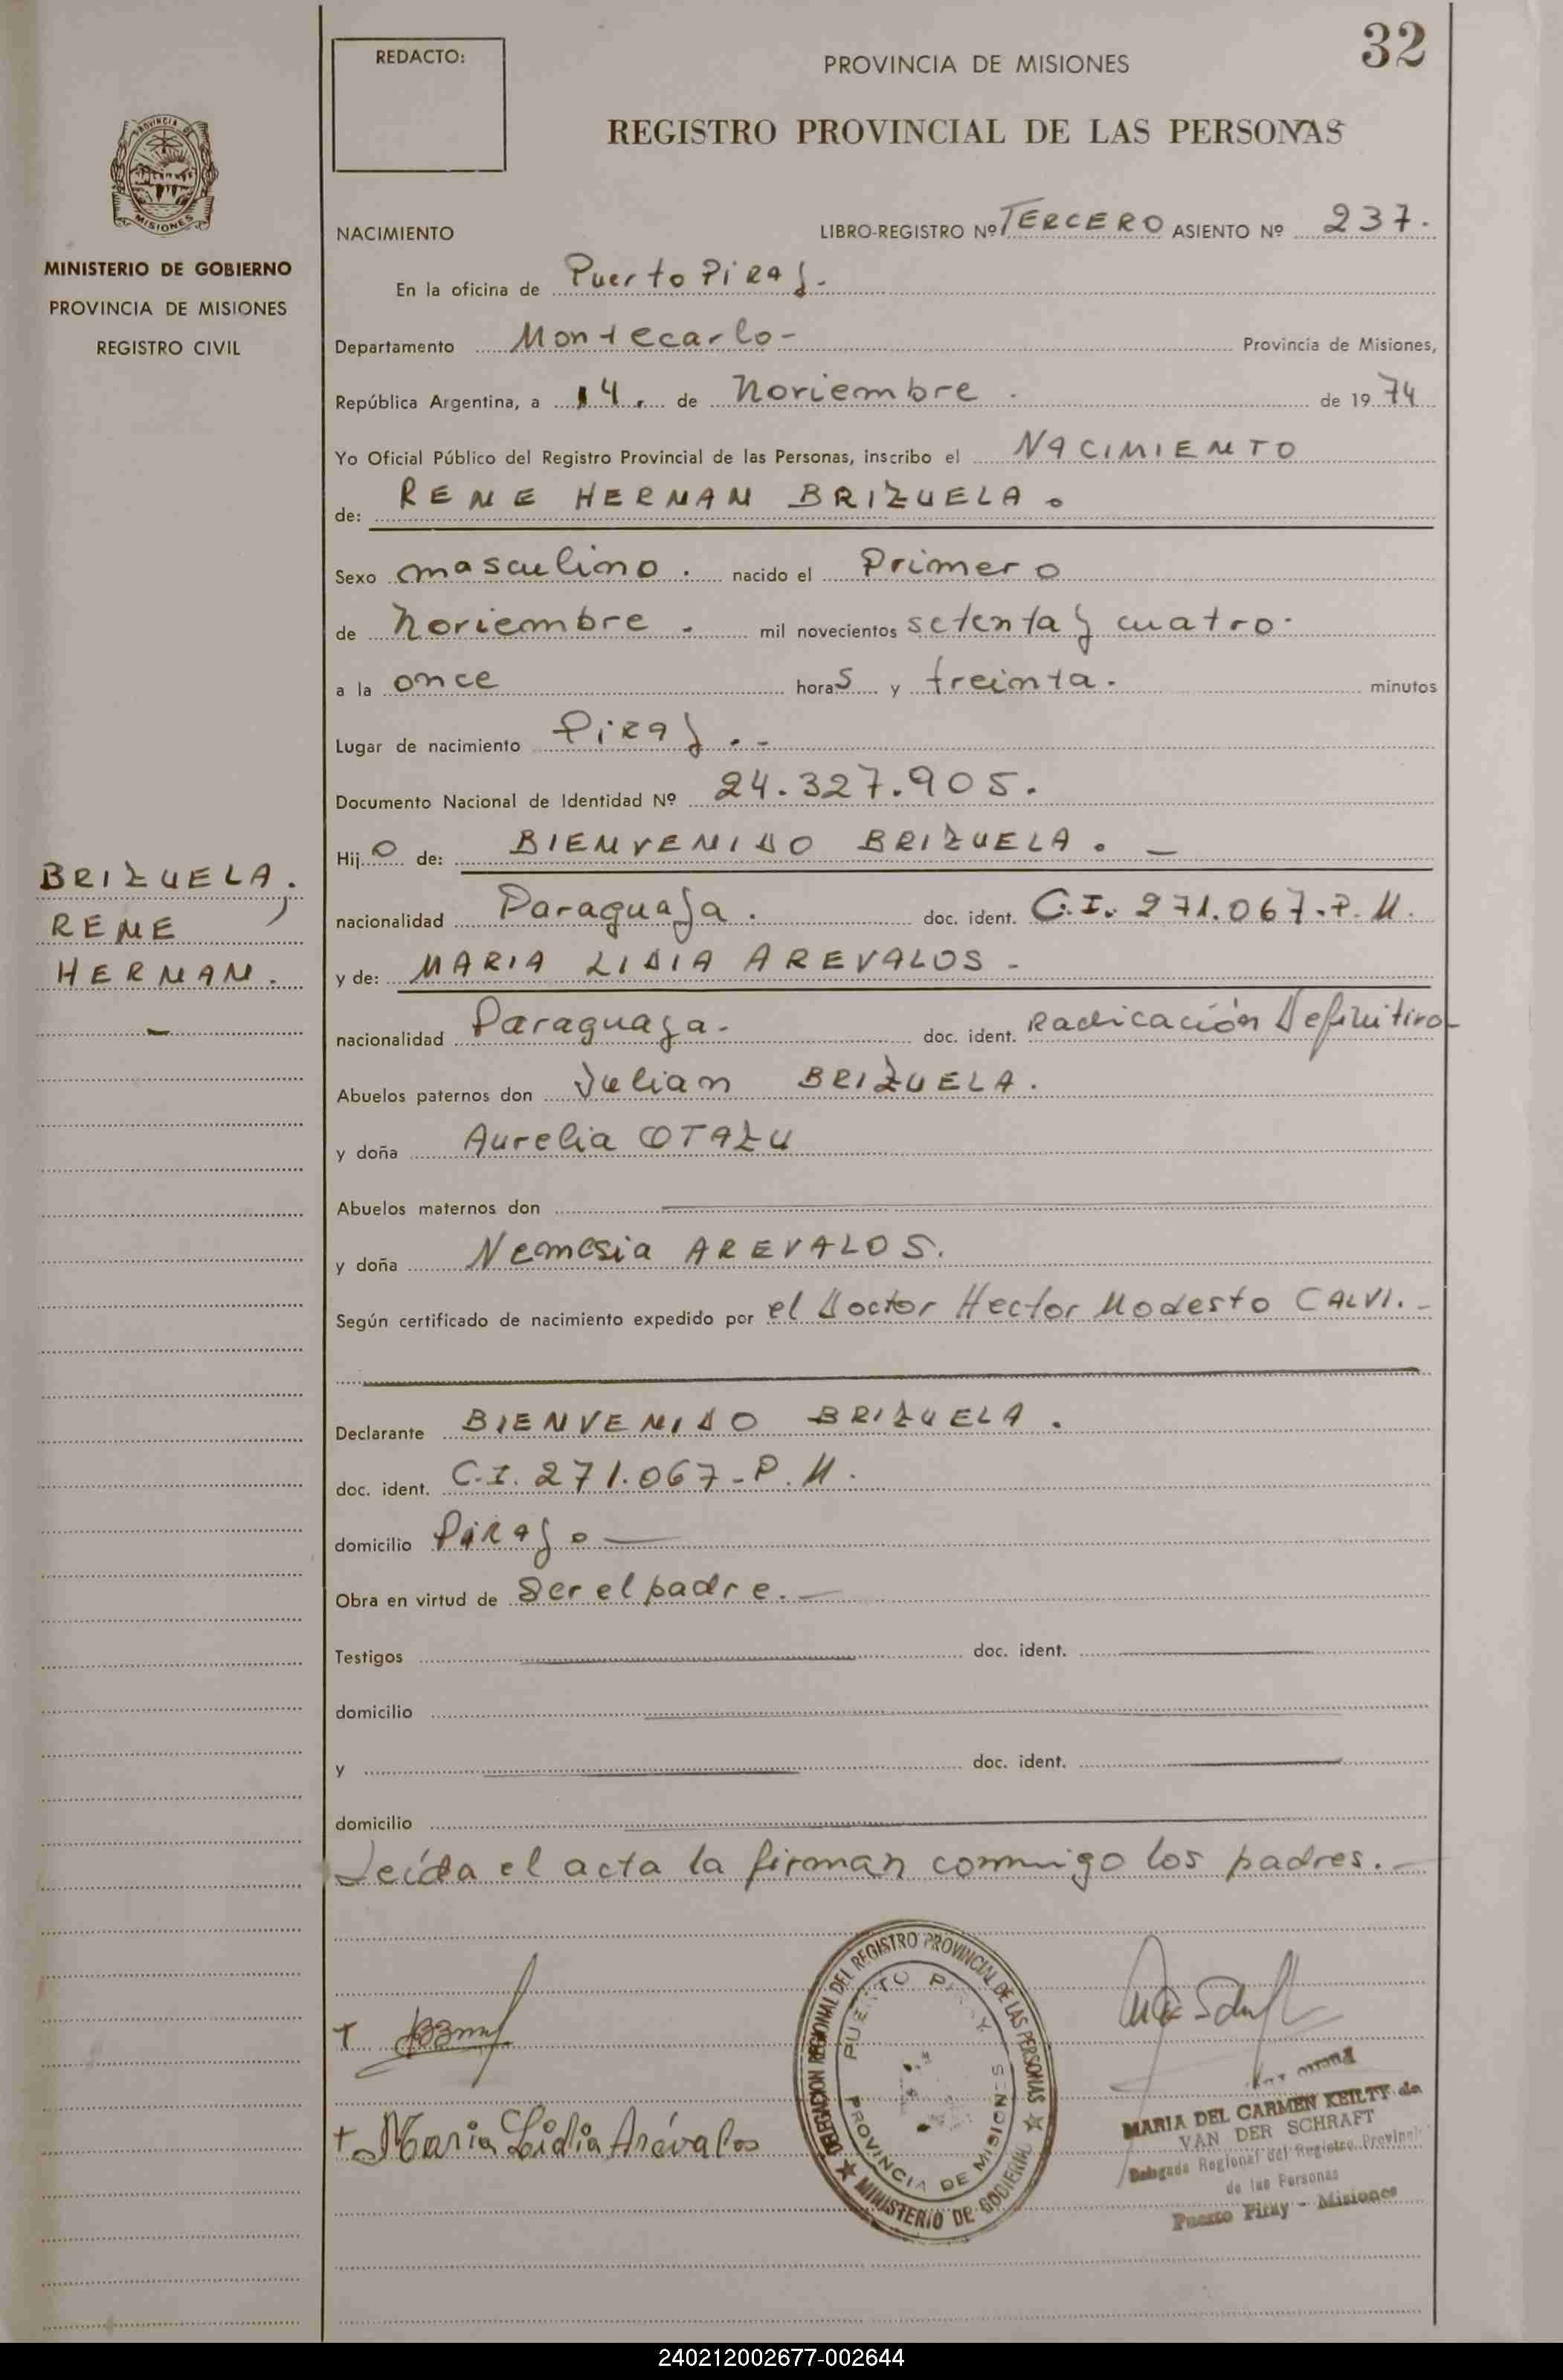 32
REDACTO:
PROVINCIA DE MISIONES
REGISTRO PROVINCIAL DE LAS PERSONAS
PROVINCIA DE
MISIONES
MINISTERIO DE GOBIERNO
PROVINCIA DE MISIONES
REGISTRO CIVIL
NACIMIENTO LIBRO-REGISTRO Nº TERCERO ASIENTO Nº 237.
En la oficina de Puerto Piray.
Departamento Montecarlo- Provincia de Misiones,
República Argentina, a 14. de Noviembre. de 19 74
Yo Oficial Público del Registro Provincial de las Personas, inscribo el NACIMIENTO
de: RENE HERNAN BRIZUELA.
Sexo masculino. nacido el Primero
de Noviembre. mil novecientos setenta y cuatro.
a la once horas y treinta. minutos
Lugar de nacimiento Piray.-
Documento Nacional de Identidad Nº 24.327.905.
Hijo de: BIENVENIDO BRIZUELA. -
nacionalidad Paraguaya. doc. ident. C.I. 271.067.P.M.
y de: MARIA LIDIA AREVALOS -
nacionalidad Paraguaya. doc. ident. Radicación Definitiva
BRIZUELA,
RENE
HERNAN.
Abuelos paternos don Julian BRIZUELA.
y doña Aurelia OTAZU
Abuelos maternos don
y doña Nemesia AREVALOS.
Según certificado de nacimiento expedido por el Doctor Hector Modesto CALVI.-
Declarante BIENVENIDO BRIZUELA.
doc. ident. C.I. 271.067-P.M.
domicilio Piray.-
Obra en virtud de Ser el padre.-
Testigos doc. ident.
domicilio
y doc. ident.
domicilio
Leída el acta la firman conmigo los padres.-
+ Maria Lidia Arévalos
DELEGACION REGIONAL DEL REGISTRO PROVINCIAL DE LAS PERSONAS
MINISTERIO DE GOBIERNO
PUERTO PIRAY
PROVINCIA DE MISIONES
MARIA DEL CARMEN KEILTY de
VAN DER SCHRAFT
Delegada Regional del Registro Provincial
de las Personas
Puerto Piray - Misiones
240212002677-002644